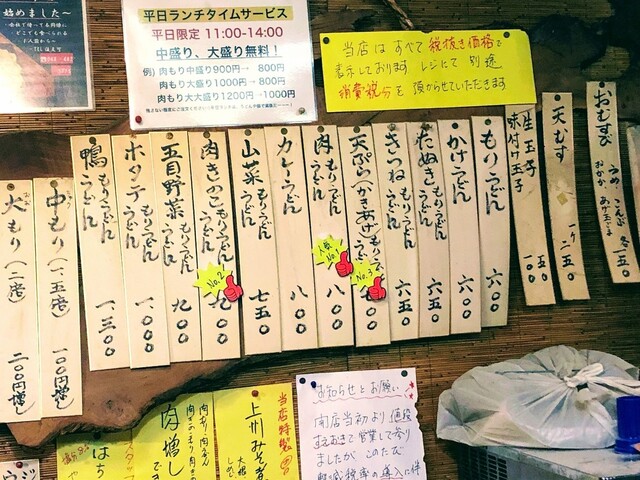 始めました〜
平日ランチタイムサービス
平日限定 11:00-14:00
中盛り、大盛り無料!
例) 肉もり中盛り900円→ 800円
肉もり大盛り1000円→ 800円
肉もり大大盛り1200円→ 1000円
当店はすべて税抜き価格で
表示しております レジにて 別途
消費税分を頂からせていただきます
おむすび うめ こんぶ おかか あげ玉ごま 各一五〇
天むす 一ケ 二五〇
生玉子 一〇〇
味付け玉子 一五〇
もりうどん 六〇〇
かけうどん 六〇〇
たぬきもり・うどん 六五〇
きつねもり・うどん 六五〇
天ぷら(かきあげ)もり・うどん
人気 No.3
肉もり・うどん 八〇〇
人気 No.1
カレーうどん 八〇〇
山菜もり・うどん 七五〇
肉きのこもり・うどん 九〇〇
No.2
五目野菜もり・うどん 九〇〇
ホタテもり・うどん 一、〇〇〇
鴨もり・うどん 一、三〇〇
中もり(一、五倍) 一〇〇円増し
大もり(二倍) 二〇〇円増し
お知らせとお願い
開店当初より値段
すえおきで営業して参り
ましたが このたび
軽減税率の導入に伴
当店特製
上州みそ煮
大根
肉増し